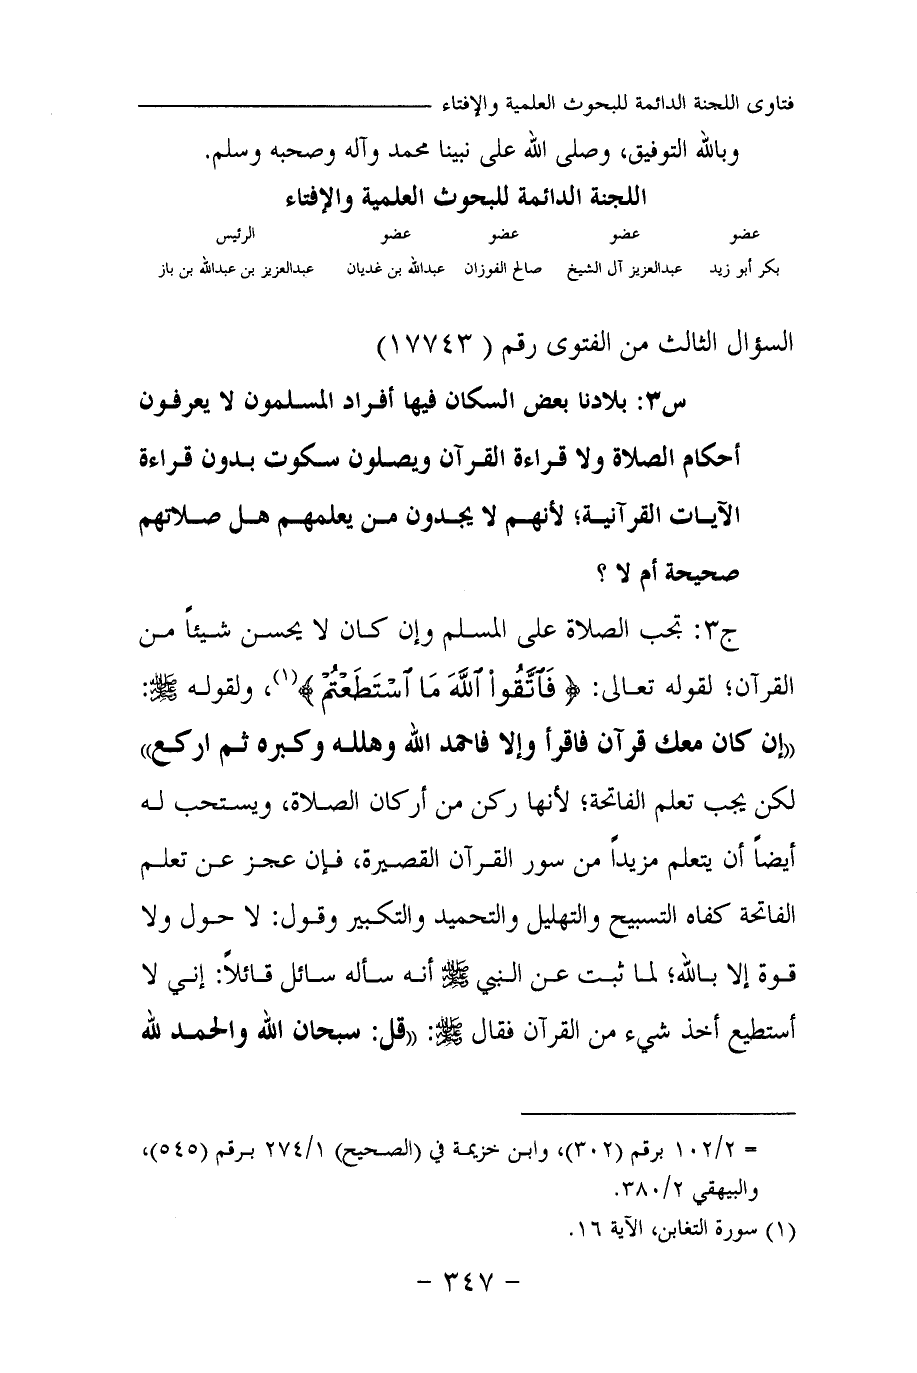 فتاوى اللجنة الدائمة للبحوث العلمية والإفتاء
وبالله التوفيق، وصلى الله على نبينا محمد وآله وصحبه وسلم.
اللجنة الدائمة للبحوث العلمية والإفتاء
عضو عضو عضو عضو الرئيس
بكر أبو زيد عبدالعزيز آل الشيخ صالح الفوزان عبدالله بن غديان عبدالعزيز بن عبدالله بن باز
السؤال الثالث من الفتوى رقم ( ١٧٧٤٣)
س٣: بلادنا بعض السكان فيها أفراد المسلمون لا يعرفون
أحكام الصلاة ولا قراءة القرآن ويصلون سكوت بدون قراءة
الآيات القرآنية؛ لأنهم لا يجدون من يعلمهم هل صلاتهم
صحيحة أم لا ؟
ج٣: تجب الصلاة على المسلم وإن كان لا يحسن شيئاً من
القرآن؛ لقوله تعالى: ﴿ فَٱتَّقُوا۟ ٱللَّهَ مَا ٱسْتَطَعْتُمْ ﴾(١)، ولقوله ﷺ:
((إن كان معك قرآن فاقرأ وإلا فاحمد الله وهلله وكبره ثم اركع))
لكن يجب تعلم الفاتحة؛ لأنها ركن من أركان الصلاة، ويستحب له
أيضاً أن يتعلم مزيداً من سور القرآن القصيرة، فإن عجز عن تعلم
الفاتحة كفاه التسبيح والتهليل والتحميد والتكبير وقول: لا حول ولا
قوة إلا بالله؛ لما ثبت عن النبي ﷺ أنه سأله سائل قائلاً: إني لا
أستطيع أخذ شيء من القرآن فقال ﷺ: ((قل: سبحان الله والحمد لله
= ١٠٢/٢ برقم (٣٠٢)، وابن خزيمة في (الصحيح) ٢٧٤/١ برقم (٥٤٥)،
والبيهقي ٣٨٠/٢.
(١) سورة التغابن، الآية ١٦.
- ٣٤٧ -